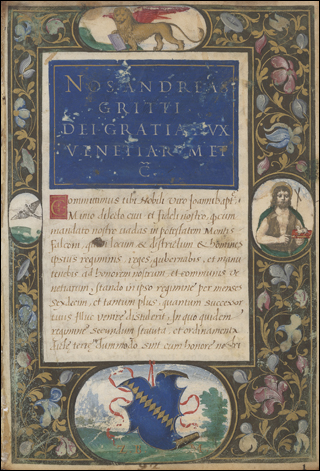 NOS ANDREAS
GRITTI
DEI GRATIA DVX
VENETIAR. ME
Committimus tibi Nobili Viro Joanni bapt.
Minio dilecto ciui, et fideli nostro, q. cum
mandato nostro uadas in potestatem Montis
Falconis, locum & districtum & homines
ipsius regiminis reges, gubernabis, et manu
tenebis ad honorem nostrum, et communis ve
netiarum, stando in ipso regimine per menses
sexdecim, et tantum plus, quantum successor
tuus illuc venire distulerit. In quo quidem
regimine secundum statuta, et ordinamenta
dictae terre, dummodo sint cum honore nostri
1